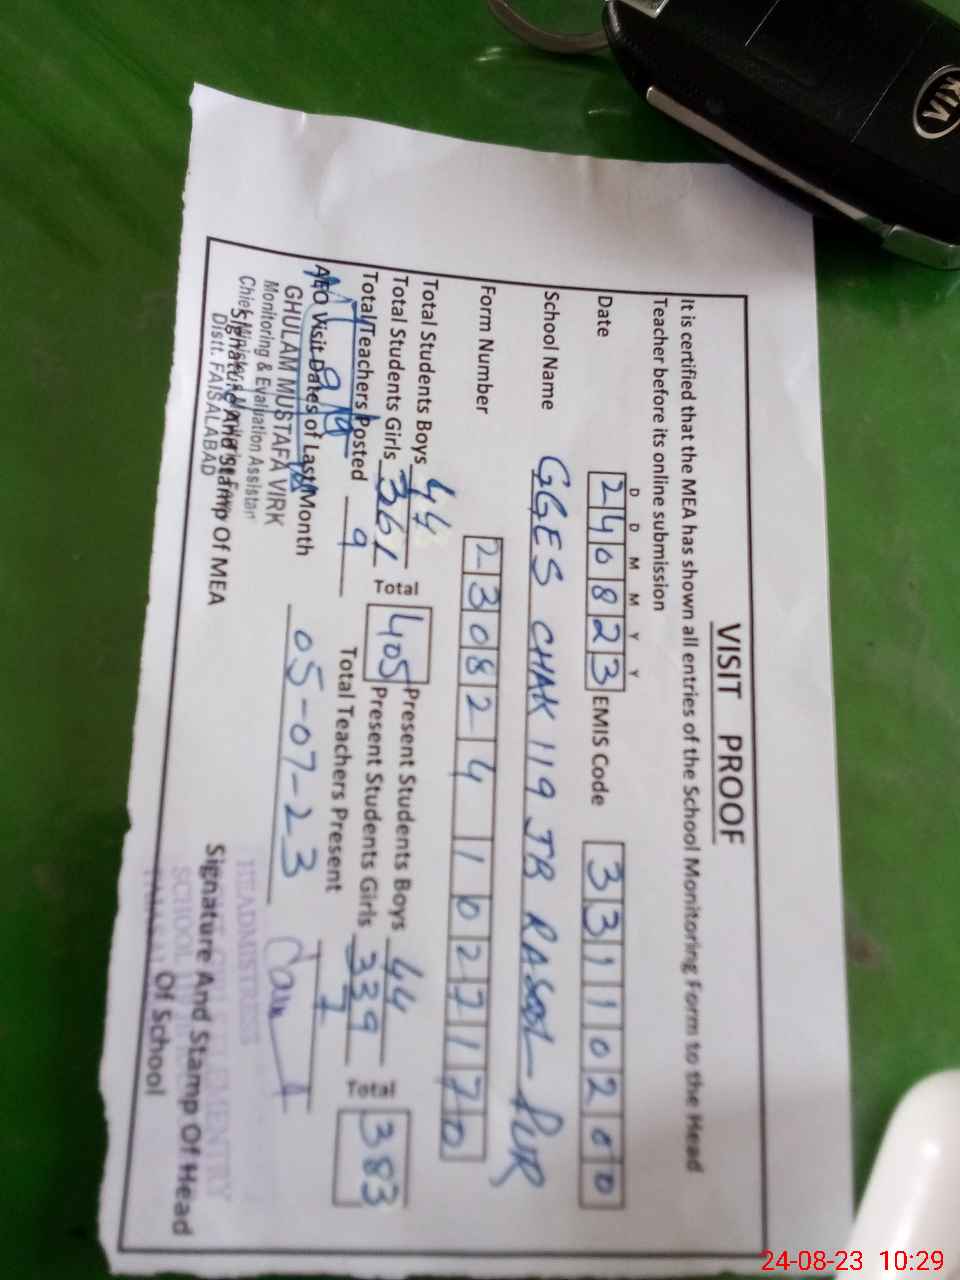 VISIT PROOF
It is certified that the MEA has shown all entries of the School Monitoring Form to the Head
Teacher before its online submission
D D M M Y Y
Date 240823 EMIS Code 33110200
School Name GGES CHAK 119 JB RASOOL PUR
Form Number 2308241027170
Total Students Boys 44 Present Students Boys 44
Total Students Girls 361 Total 405 Present Students Girls 339 Total 383
Total Teachers Posted 9 Total Teachers Present 7
AEO Visit Dates of Last Month 05-07-23
GHULAM MUSTAFA VIRK
Monitoring & Evaluation Assistant
Signature And Stamp Of MEA
Distt. FAISALABAD
HEADMISTRESS
Signature And Stamp Of Head
Of School
KIA
24-08-23 10:29